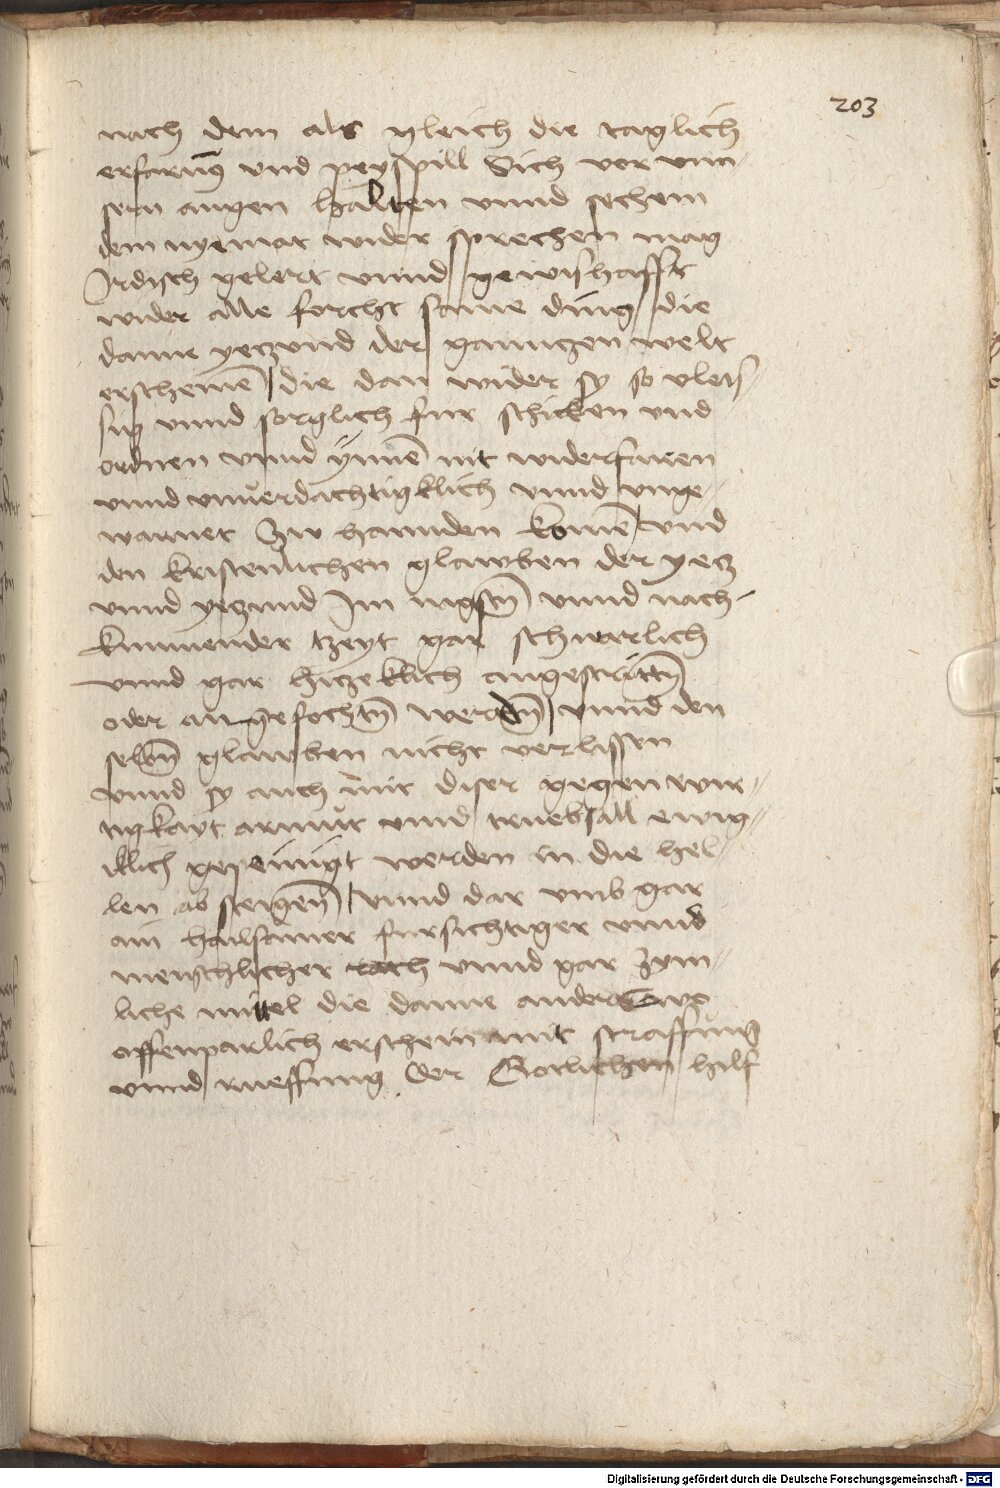 203
nach dem als gleich die taglich
erfarūg vnd peyspill Sich vor vnn-
sern augen halten vnnd sechem
dem nyemat wider sprechen mag
Irdisch gelert vnnd gewishafft
wider alle forcht same ding die
danne yeczund der ganngen welt
erschemē die dan wider sy so vleis-
sig vnnd sorglich fur schicken vnd
ordnen vnnd ynnē nit widerfaren
vnnd vnuerdachtigklich vnnd vnge-
warnet Zw hannden komē vnd
den kristenlichen glawben der yecz
vnnd yeczund Im nagstn̄ vnnd nach-
kumender tzeyt gar schwarlich
vnnd gar hiczeklich angestrittn̄
oder angefochtn̄ werdn̄ vnnd den
selbn̄ glawben nicht verlissen
vnnd sy auch mit diser gegenwur-
tigkayt armut vnnd truebsall ewig-
klich gepeinigt werden in die hel-
len ab steigen̄ vnnd dar vmb gar
ain hailsamer fursichtiger vnnd
menschlicher rath vnnd gar zym-
liche mittel die danne anderswo
offenparlich erschein mit straffung
vnnd rueffung der Gotlichen hilf
Digitalisierung gefördert durch die Deutsche Forschungsgemeinschaft - DFG